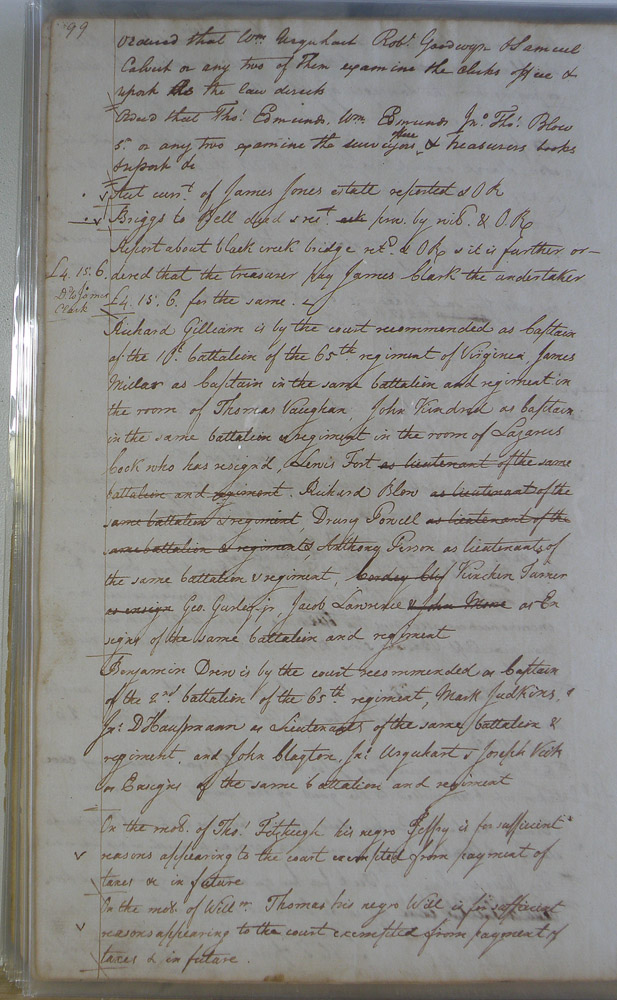 99
Ordered that Wm Urquhart Robt Goodwyn & Samuel
Calvert or any two of them examine the clerks office &
report to the law directs
Ordered that Thos Edmunds, Wm Edmunds Jno Thos Blow
Sr or any two examine the surveyors office & treasurers books
& report &c
Act currt of James Jones estate reported & OR
Briggs to Bell deed & rect prov. by wit. & O.R.
Report about black creek bridge retd & OR & it is further or-
£4. 15. 6. dered that the treasurer pay James Clark the undertaker
Do to James £4. 15. 6. for the same.
Clark
Richard Gilliam is by the court recommended as Captain
of the 1st battalion of the 65th regiment of Virginia, James
Millar as Captain in the same battalion and regiment in
the room of Thomas Vaughan, John Kindred as captain
in the same battalion & regiment in the room of Lazarus
Cook who has resign'd, Lewis Fort as lieutenant of the same
battalion and regiment. Richard Blow as lieutenant of the
same battalion & regiment, Drury Powell as lieutenant of the
same battalion & regiment & Anthony Person as lieutenants of
the same battalion & regiment, Kinchen Turner
as ensign Geo. Gurley jr, Jacob Lawrence & John Mone as En
signs of the same battalion and regiment
Benjamin Drew is by the court recommended as Captain
of the 2nd battalion of the 65th regiment, Mark Judkins, &
Jno D Haussmann as Lieutenants of the same battalion &
regiment, and John Clayton, Jno Urquhart & Joseph Vick
as Ensigns of the same battalion and regiment
On the mo. of Thos Fitzhugh his negro Jeffry is for sufficient
reasons appearing to the court exempted from payment of
taxes &c in future
On the mo. of Willm Thomas his negro Will is for sufficient
reasons appearing to the court exempted from payment of
taxes & in future.